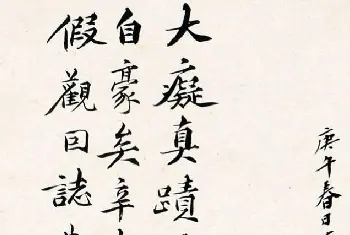 大癡真蹟
自豪矣辛
假觀因誌
庚午春日